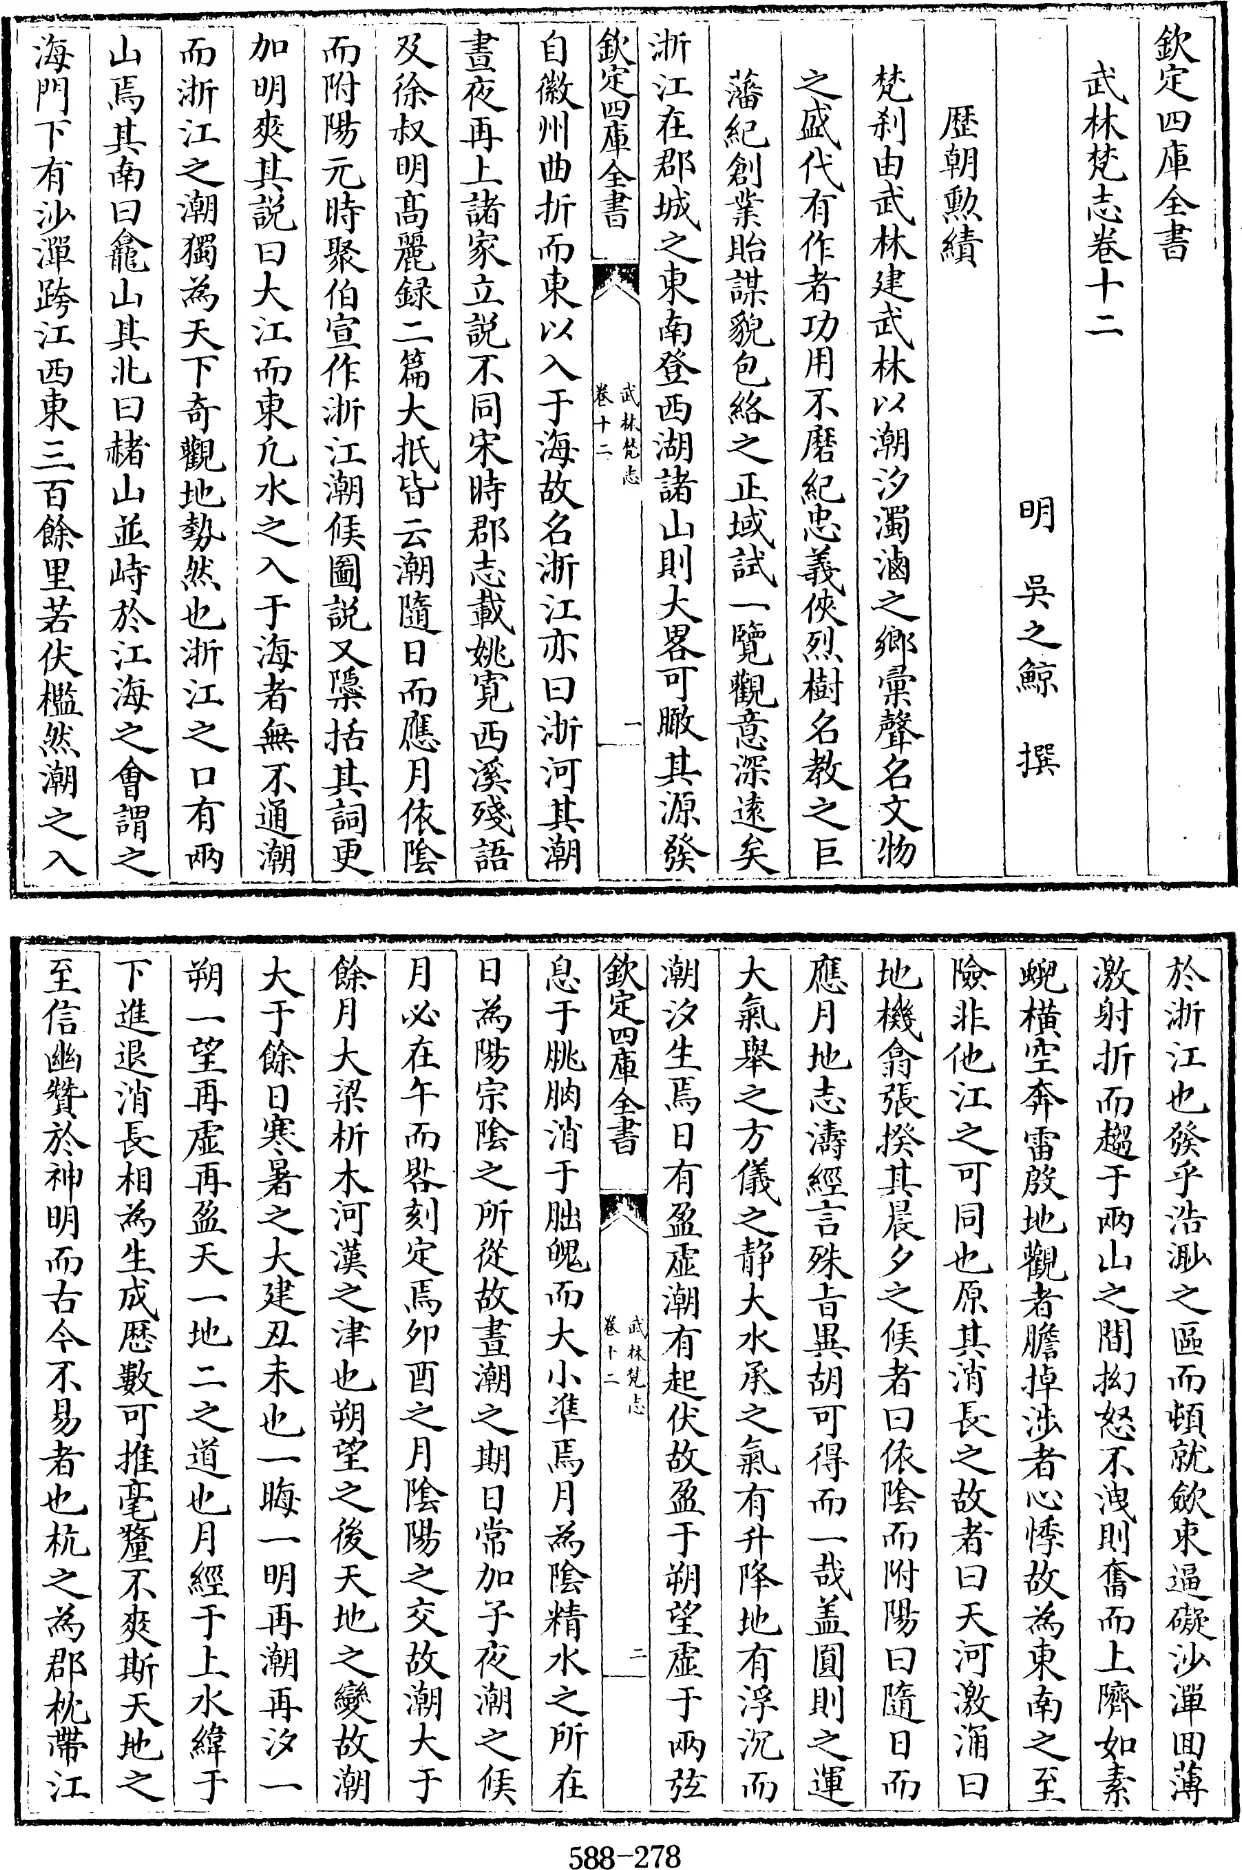 欽定四庫全書
武林梵志卷十二
明 吳之鯨 撰
歴朝勲績
梵刹由武林建武林以潮汐濁滷之鄉彚聲名文物
之盛代有作者功用不磨紀忠義俠烈樹名教之巨
藩紀創業貽謀貌包絡之正域試一覽觀意深逺矣
浙江在郡城之東南登西湖諸山則大畧可瞰其源發
欽定四庫全書
武林梵志
卷十二
一
自徽州曲折而東以入于海故名浙江亦曰浙河其潮
晝夜再上諸家立説不同宋時郡志載姚寛西溪殘語
及徐叔明髙麗録二篇大抵皆云潮隨日而應月依陰
而附陽元時聚伯宣作浙江潮候圖説又檃括其詞更
加明爽其説曰大江而東凢水之入于海者無不通潮
而浙江之潮獨為天下奇觀地勢然也浙江之口有兩
山焉其南曰龕山其北曰赭山並峙於江海之㑹謂之
海門下有沙潬跨江西東三百餘里若伏檻然潮之入
於浙江也發乎浩渺之區而頓就歛束逼礙沙潬回薄
激射折而趨于兩山之間拗怒不洩則奮而上隮如素
蜺橫空奔雷殷地觀者膽掉涉者心悸故為東南之至
險非他江之可同也原其消長之故者曰天河激涌曰
地機翕張揆其晨夕之候者曰依陰而附陽曰隨日而
應月地志濤經言殊㫖異胡可得而一哉盖圓則之運
大氣舉之方儀之静大水承之氣有升降地有浮沉而
潮汐生焉日有盈虚潮有起伏故盈于朔望虚于兩弦
欽定四庫全書
武林梵志
卷十二
二
息于朓朒消于朏魄而大小凖焉月為陰精水之所在
日為陽宗陰之所從故晝潮之期日常加子夜潮之候
月必在午而晷刻定焉卯酉之月陰陽之交故潮大于
餘月大梁析木河漢之津也朔望之後天地之變故潮
大于餘日寒暑之大建丑未也一晦一明再潮再汐一
朔一望再虚再盈天一地二之道也月經于上水緯于
下進退消長相為生成歴數可推毫釐不爽斯天地之
至信幽贊於神明而古今不易者也杭之為郡枕帶江
588-278